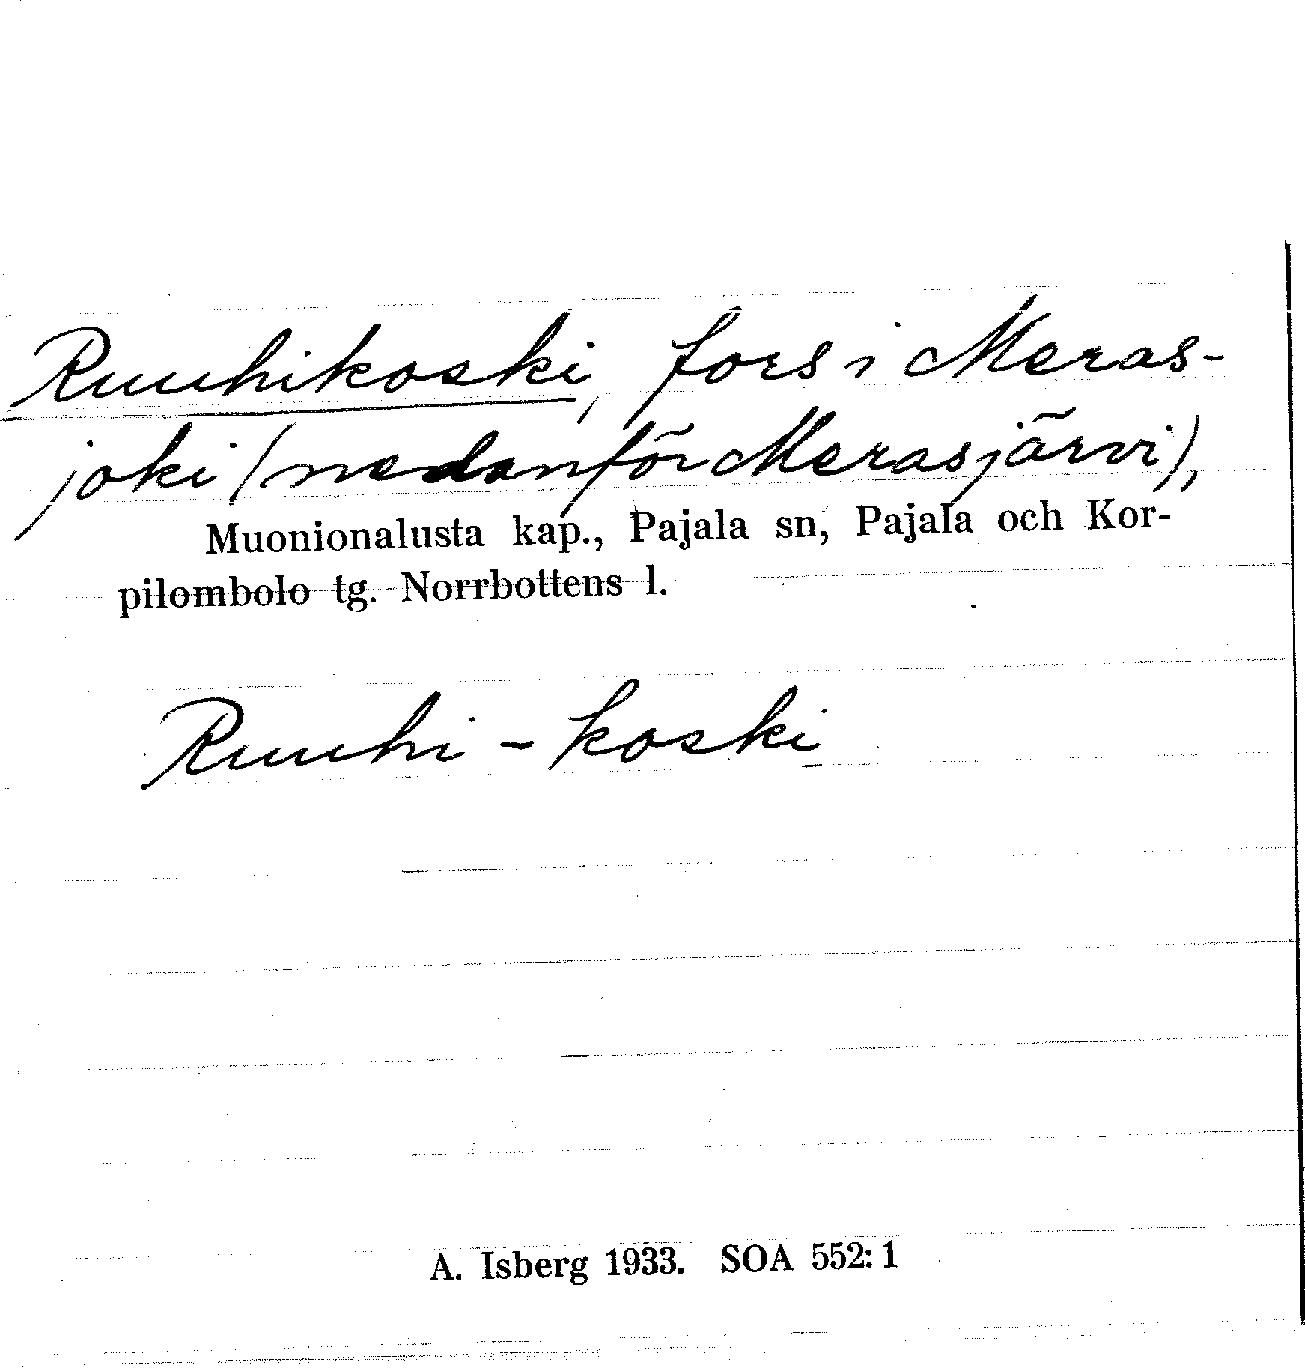 Ruuhikoski, fors i Meras-
joki (nedanför Merasjärvi),
Muonionalusta kap., Pajala sn, Pajala och Kor-
pilombolo tg. Norrbottens l.
Ruuhi - koski
A. Isberg 1933. SOA 552:1